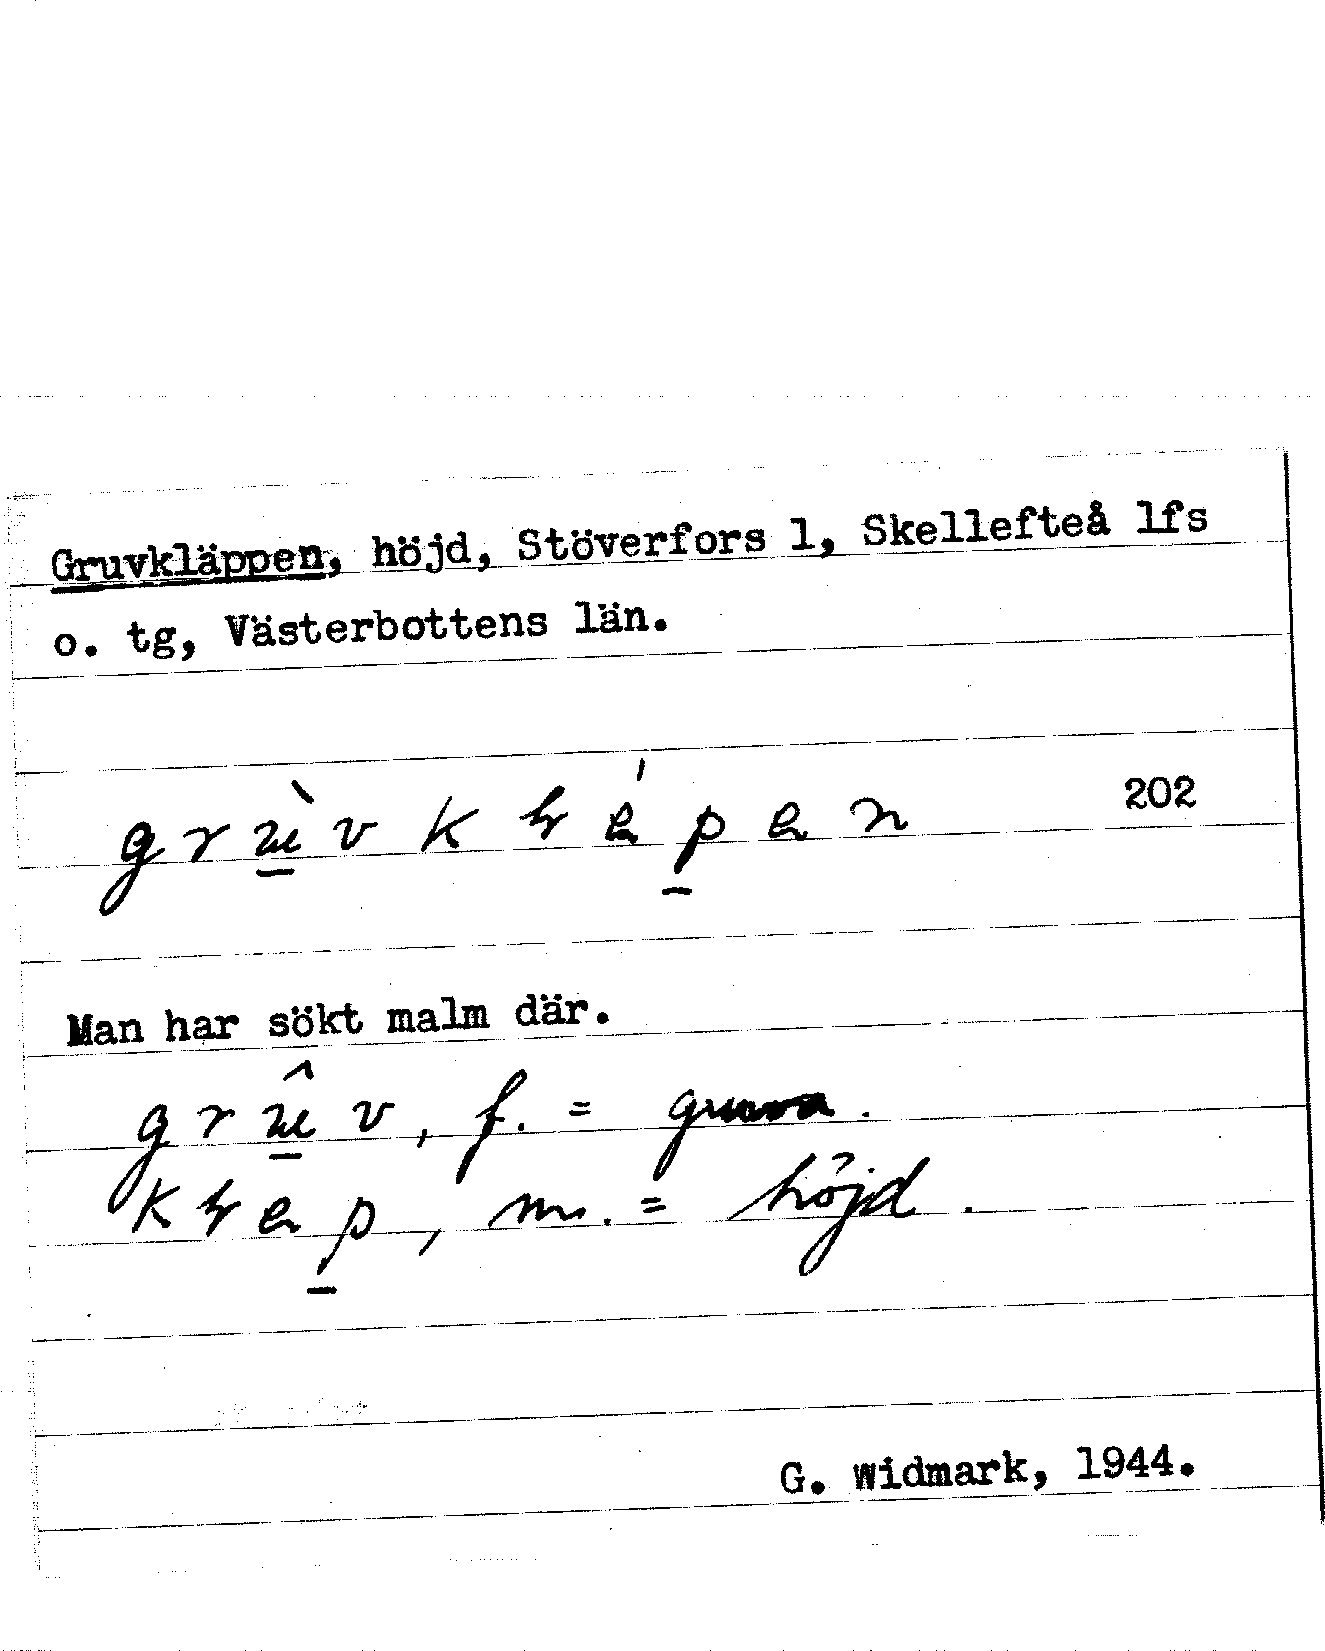 Gruvkläppen, höjd, Stöverfors 1, Skellefteå lfs
o. tg, Västerbottens län.
202
Man har sökt malm där.
f. = gruva.
m. = höjd.
G. Widmark, 1944.